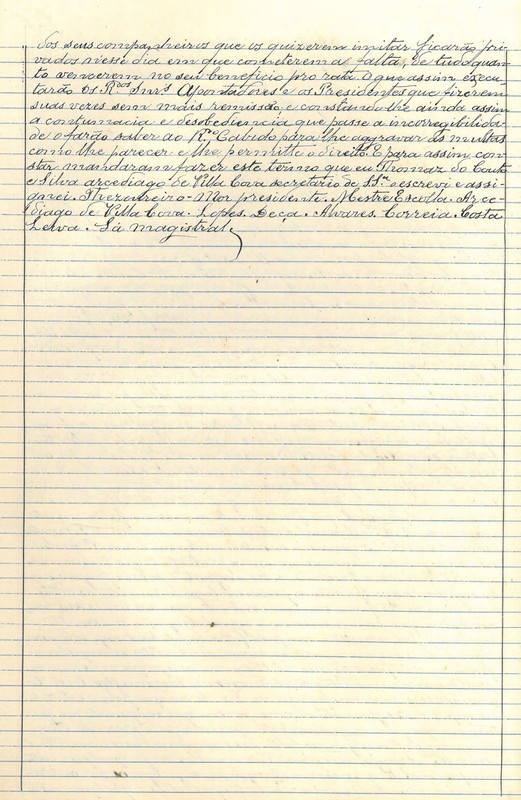 dos seus companheiros que os quizerem imitar ficarão pri-
vados nesse dia em que cometerem a falta, de tudo quan-
to vencerem no seu beneficio pro rata. O que assim execu-
tarão os R.dos Snr.s Apontadores e os Presidentes que fizerem
suas vezes sem mais remissão, e constando-lhe ainda assim
a contumacia e desobediencia que passe a incorregibilida-
de o farão saber ao R.mo Cabido para lhe aggravar as multas
como lhe parecer e lhe permitte o direito. E para assim con-
star mandaram fazer este termo que eu Thomaz do Couto
e Silva arcediago de Villa Cova secretario de S.ria escrevi e assi-
gnei. Thezoureiro-Mór presidente. Mestre Escolla. Arce-
diago de Villa Cova. Lopes. Deça. Alvares. Correia. Costa
Leiva. Sá magistral.